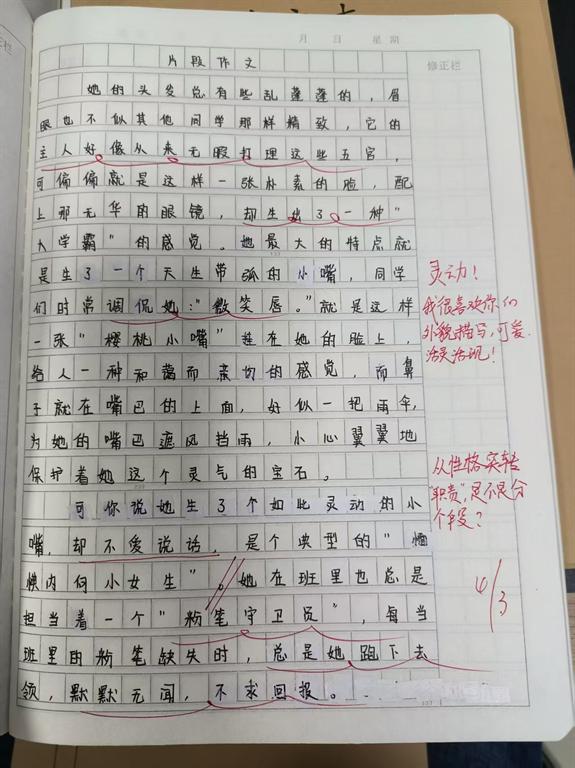 月 日 星期
修正栏
片段作文
她的头发总有些乱蓬蓬的，眉
眼也不似其他同学那样精致，它的
主人好像从来无暇打理这些五官，
可偏偏就是这样一张朴素的脸，配
上那无华的眼镜，却生出了一种"
大学霸"的感觉。她最大的特点就
是生了一个天生带弧的小嘴，同学
们时常调侃她："微笑唇。"就是这样
一张"樱桃小嘴"挂在她的脸上，
给人一种和蔼而亲切的感觉，而鼻
子就在嘴巴的上面，好似一把雨伞，
为她的嘴巴遮风挡雨，小心翼翼地
保护着她这个灵气的宝石。
可你说她生了个如此灵动的小
嘴，却不爱说话，是个典型的"腼
腆内向小女生"。她在班里也总是
担当着一个"粉笔守卫员"，每当
班里的粉笔缺失时，总是她跑下去
领，默默无闻，不求回报。
灵动！
我很喜欢你们
外貌描写，可爱
活灵活现！
从性格突转
"职责"，是否是分
个段？
4/3